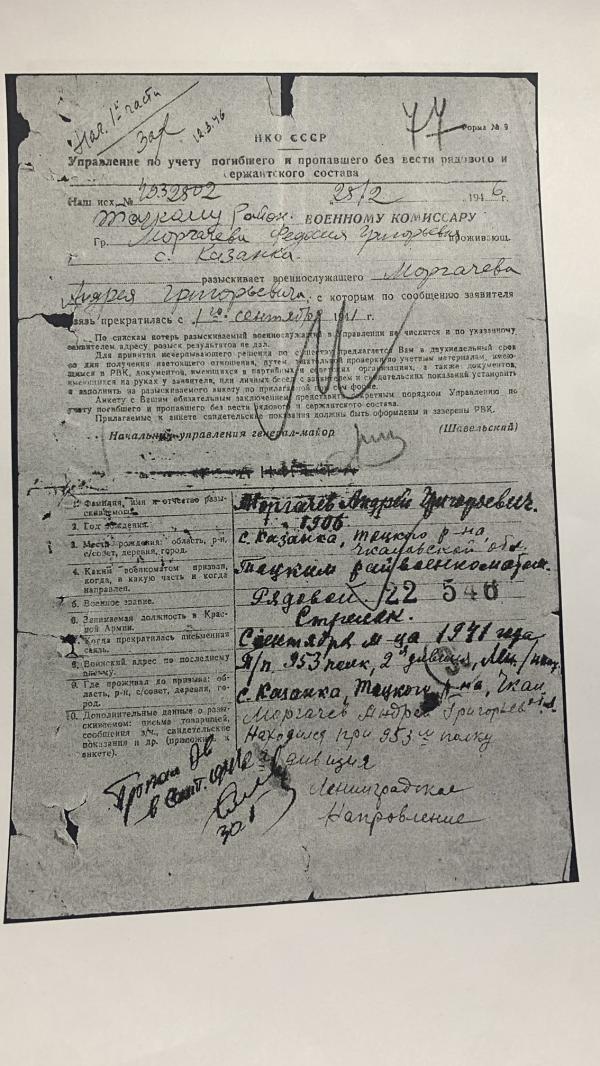 Нач. 1й части
12.3.46
77
Форма № 9
НКО СССР
Управление по учету погибшего и пропавшего без вести рядового и
сержантского состава
Наш исх. № 28/2 1946 г.
Тоцкому район. ВОЕННОМУ КОМИССАРУ
Гр. Моргачева Федосия Григорьевна проживающ.
с. Казанка.
разыскивает военнослужащего Моргачева
Андрея Григорьевича, с которым по сообщению заявителя
связь прекратилась с 1го сентября 1941 г.
По спискам потерь разыскиваемый военнослужащий в управлении не числится и по указанному
заявителем адресу, розыск результатов не дал.
Для принятия исчерпывающего решения по существу предлагается Вам в двухнедельный срок
со дня получения настоящего отношения, путем тщательной проверки по учетным материалам, имею-
щимся в РВК, документов, имеющихся в партийных и советских организациях, а также документов,
имеющихся на руках у заявителя, или личных бесед с заявителем и свидетельских показаний установить
и заполнить на разыскиваемого анкету по прилагаемой форме.
Анкету с Вашим обязательным заключением представить секретным порядком Управлению по
учету погибшего и пропавшего без вести рядового и сержантского состава.
Прилагаемые к анкете свидетельские показания должны быть оформлены и заверены РВК.
Начальник управления генерал-майор (Шавельский)
1. Фамилия, имя и отчество разы-
скиваемого. Моргачев Андрей Григорьевич.
2. Год рождения. 1906
3. Место рождения: область, р-н, с. Казанка, Тоцкого р-на,
с/совет, деревня, город. Чкаловской обл.
4. Каким военкоматом призван, Тоцким райвоенкоматом.
когда, в какую часть и когда
направлен.
5. Военное звание. Рядовой 22 546
6. Занимаемая должность в Крас- Стрелок.
ной Армии.
7. Когда прекратилась письменная С сентября м-ца 1941 года
связь.
8. Воинский адрес по последнему П/п 953 полк, 2я дивизия,
письму.
9. Где проживал до призыва: об- с. Казанка, Тоцкого р-на, Чкал. обл.
ласть, р-н, с/совет, деревня, го-
род.
10. Дополнительные данные о разы- Моргачев Андрей Григорьев
скиваемом: письма товарищей, Находился при 953м полку
сообщения в/ч, свидетельские 2я дивизия
показания и др. (приложить к Ленинградское
анкете). Напровление